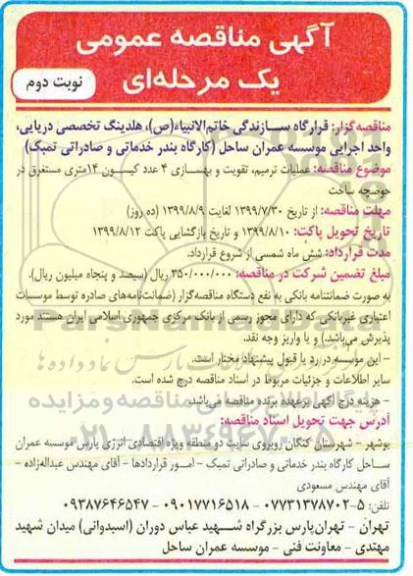 آگهی مناقصه عمومی
یک مرحله‌ای
نوبت دوم
مناقصه‌گزار: قرارگاه سازندگی خاتم‌الانبیاء(ص)، هلدینگ تخصصی دریایی،
واحد اجرایی موسسه عمران ساحل (کارگاه بندر خدماتی و صادراتی تمبک)
موضوع مناقصه: عملیات ترمیم، تقویت و بهسازی ۴ عدد کیسون ۱۴متری مستغرق در
حوضچه ساخت
مهلت مناقصه: از تاریخ ۱۳۹۹/۷/۳۰ لغایت ۱۳۹۹/۸/۹ (ده روز)
تاریخ تحویل پاکت: ۱۳۹۹/۸/۱۰ و تاریخ بازگشایی پاکت ۱۳۹۹/۸/۱۲
مدت قرارداد: شش ماه شمسی از شروع قرارداد.
مبلغ تضمین شرکت در مناقصه: ۳۵۰/۰۰۰/۰۰۰ ریال (سیصد و پنجاه میلیون ریال)،
به صورت ضمانتنامه بانکی به نفع دستگاه مناقصه‌گزار (ضمانت‌نامه‌های صادره توسط موسسات
اعتباری غیربانکی که دارای مجوز رسمی از بانک مرکزی جمهوری اسلامی ایران هستند مورد
پذیرش می‌باشد.) و یا واریز وجه نقد.
- این موسسه در رد یا قبول پیشنهاد مختار است.
سایر اطلاعات و جزئیات مربوط در اسناد مناقصه درج شده است.
- هزینه درج آگهی برعهده برنده مناقصه می‌باشد.
آدرس جهت تحویل اسناد مناقصه:
بوشهر - شهرستان کنگان روبروی سایت دو منطقه ویژه اقتصادی انرژی پارس موسسه عمران
ساحل کارگاه بندر خدماتی و صادراتی تمبک - امور قراردادها - آقای مهندس عبداله‌زاده -
آقای مهندس مسعودی
تلفن: ۵-۰۷۷۳۱۳۷۸۷۰۲ - ۰۹۰۱۷۷۱۶۵۱۸ - ۰۹۳۸۷۶۴۶۵۴۷
تهران - تهران‌پارس بزرگراه شهید عباس دوران (اسبدوانی) میدان شهید
مهتدی - معاونت فنی - موسسه عمران ساحل